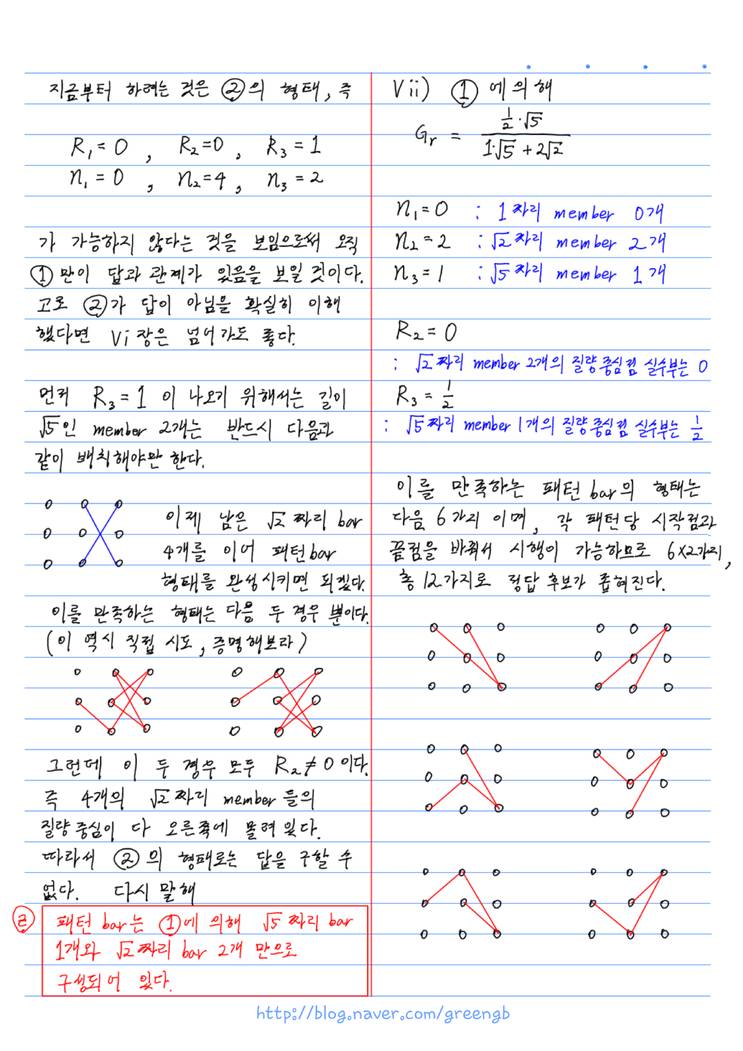 지금부터 하려는 것은 ②의 형태, 즉
R₁=0 , R₂=0 , R₃=1
n₁=0 , n₂=4 , n₃=2
가 가능하지 않다는 것을 보임으로써 오직
①만이 답과 관계가 있음을 보일 것이다.
고로 ②가 답이 아님을 확실히 이해
했다면 Vi장은 넘어가도 좋다.
먼저 R₃=1 이 나오기 위해서는 길이
√5인 member 2개는 반드시 다음과
같이 배치해야만 한다.
이제 남은 √2 짜리 bar
4개를 이어 패턴bar
형태를 완성시키면 되겠다.
이를 만족하는 형태는 다음 두 경우 뿐이다.
(이 역시 직접 시도, 증명해보라)
그런데 이 두 경우 모두 R₂≠0 이다.
즉 4개의 √2짜리 member 들의
질량중심이 다 오른쪽에 몰려있다.
따라서 ②의 형태로는 답을 구할 수
없다. 다시 말해
㉣ 패턴 bar는 ①에 의해 √5 짜리 bar
1개와 √2짜리 bar 2개 만으로
구성되어 있다.
Vii) ①에 의해
Gr = (½·√5)/(1·√5+2√2)
n₁=0 : 1짜리 member 0개
n₂=2 : √2짜리 member 2개
n₃=1 : √5짜리 member 1개
R₂=0
: √2짜리 member 2개의 질량중심점 실수부는 0
R₃=½
: √5짜리 member 1개의 질량중심점 실수부는 ½
이를 만족하는 패턴 bar의 형태는
다음 6가지 이며, 각 패턴당 시작점과
끝점을 바꿔서 시행이 가능하므로 6×2가지,
총 12가지로 정답 후보가 좁혀진다.
http://blog.naver.com/greengb